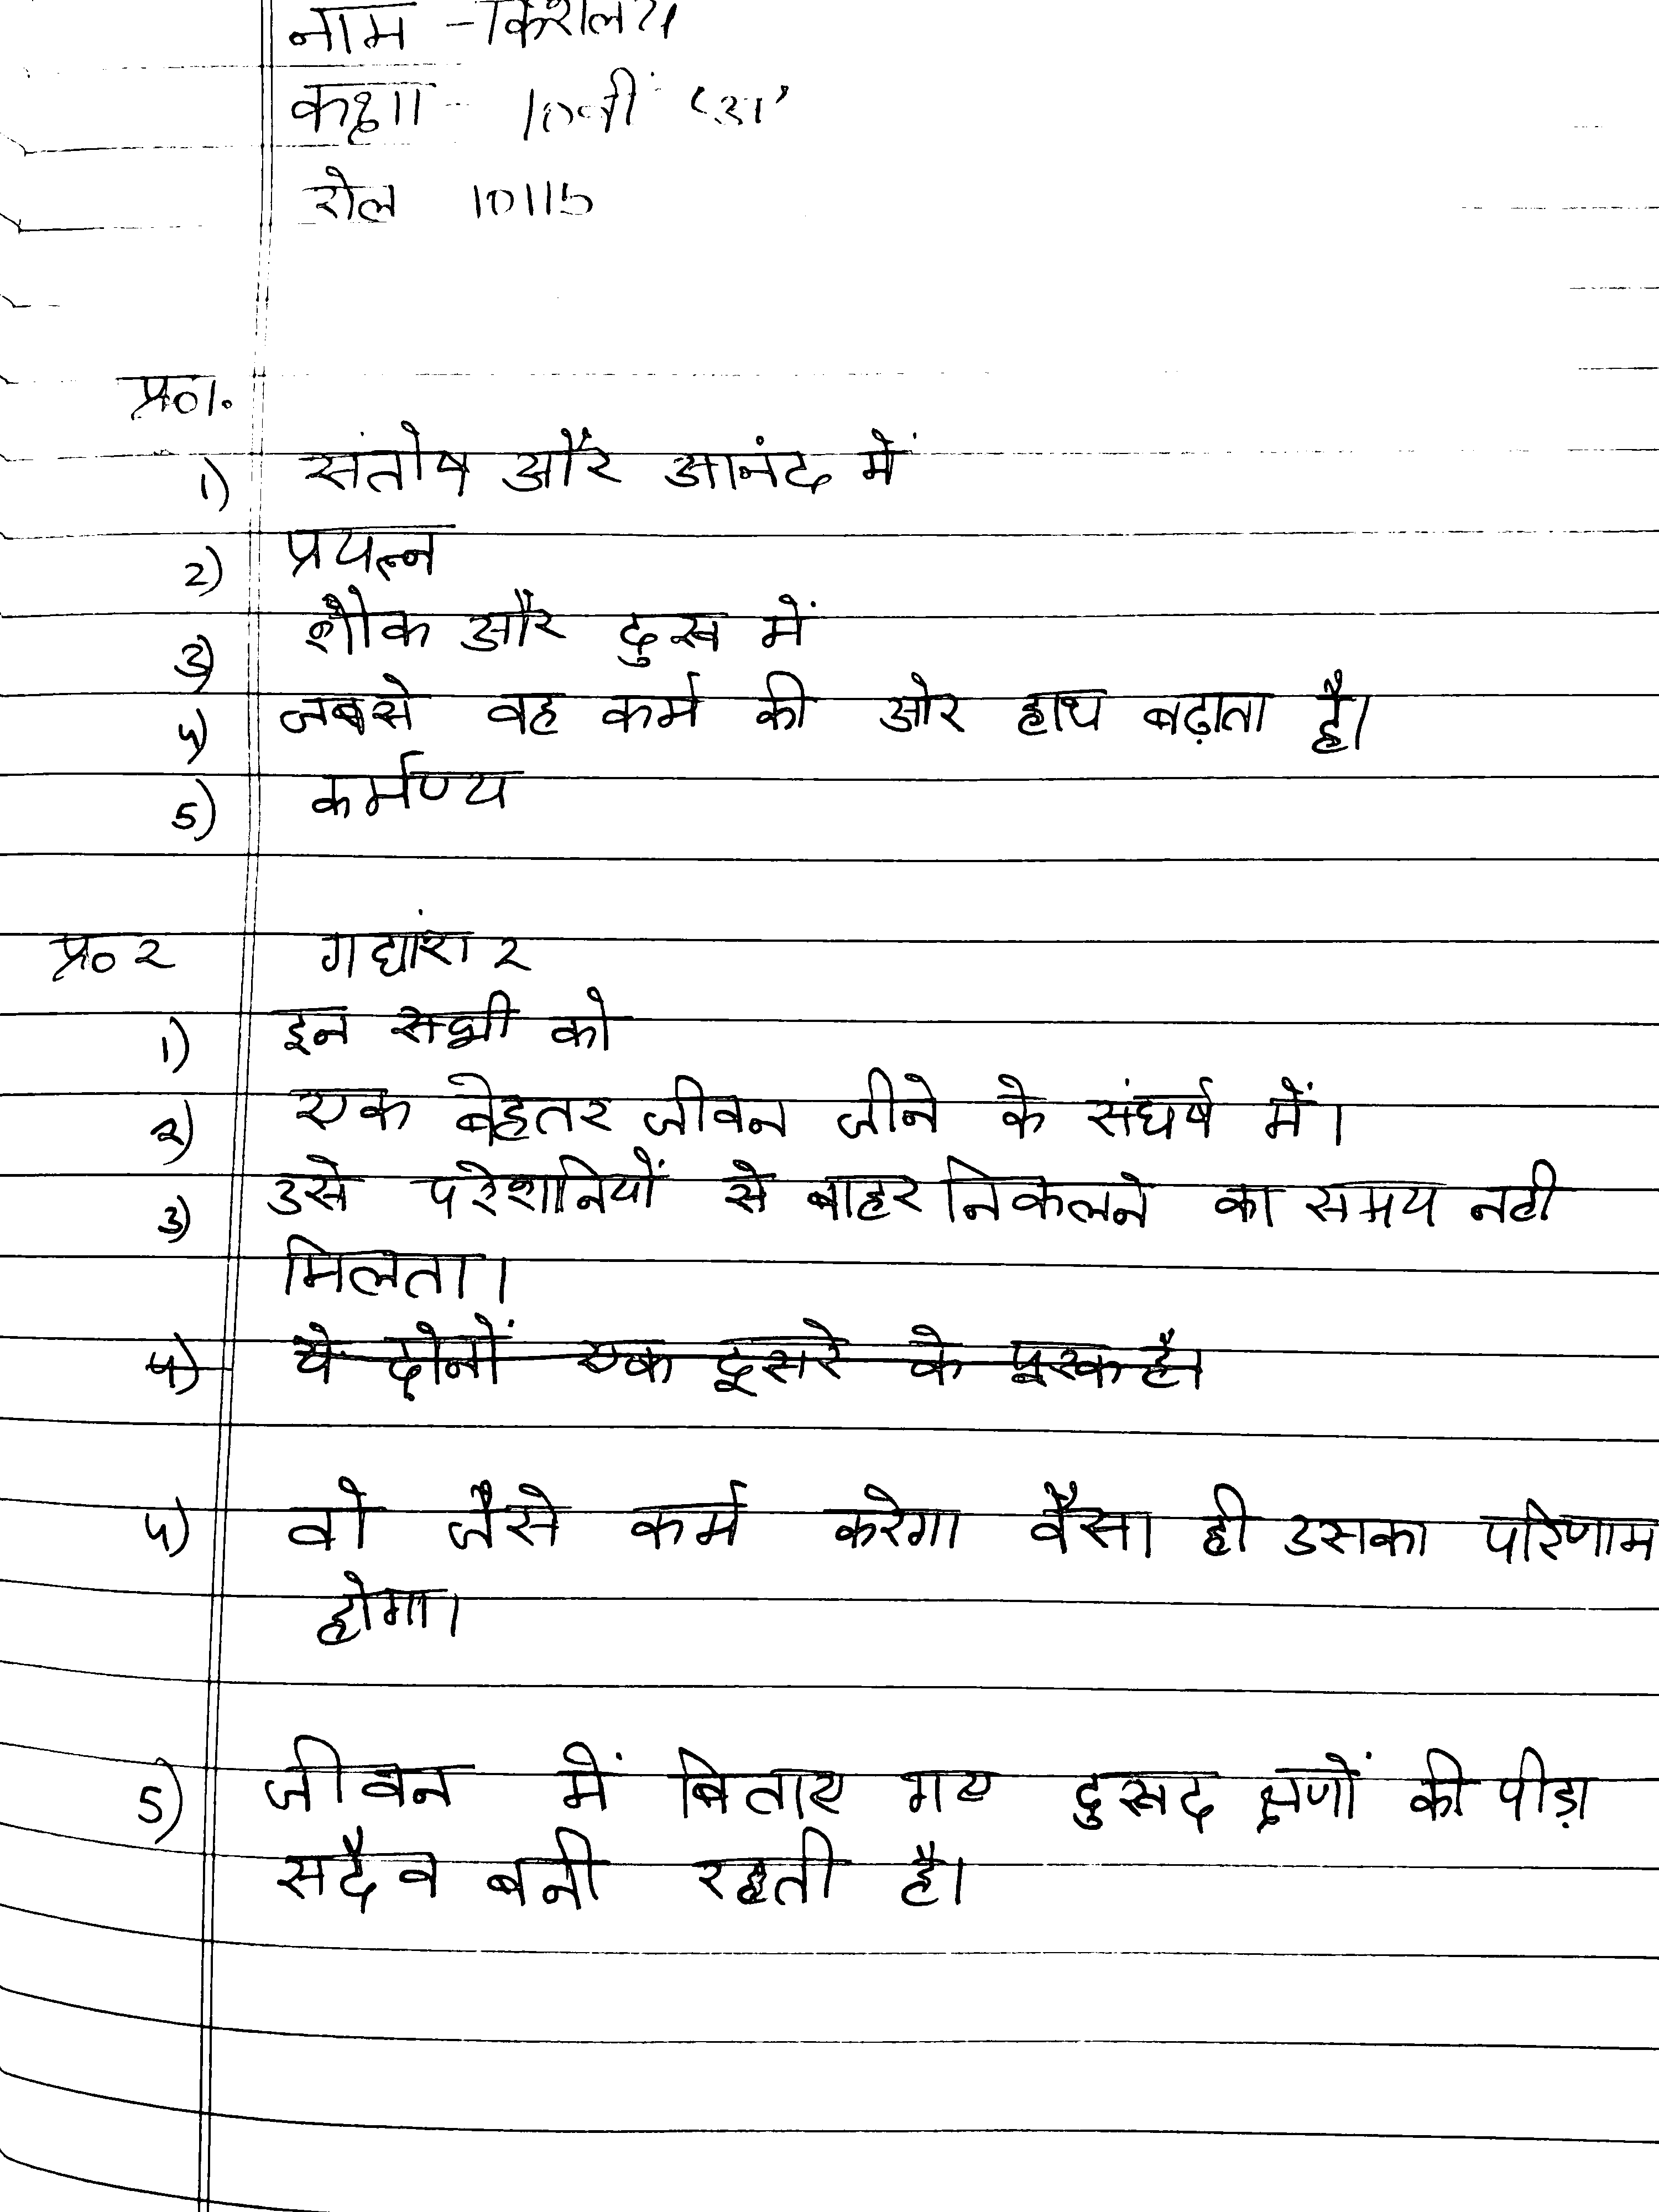 नाम - किशलय
कक्षा - 10वीं 'अ'
रोल 10115
प्र०1.
1) संतोष और आनंद में
2) प्रयत्न
3) शौक और दुख में
4) जबसे वह कर्म की ओर हाथ बढ़ाता है।
5) कर्मण्य
प्र० 2 गद्यांश 2
1) इन सभी को
2) एक बेहतर जीवन जीने के संघर्ष में।
3) उसे परेशानियों से बाहर निकलने का समय नही
मिलता।
4) ये दोनों एक दूसरे के पूरक है।
4) वो जैसे कर्म करेगा वैसा ही उसका परिणाम
होगा।
5) जीवन में बिताए गए दुखद क्षणों की पीड़ा
सदैव बनी रहती है।